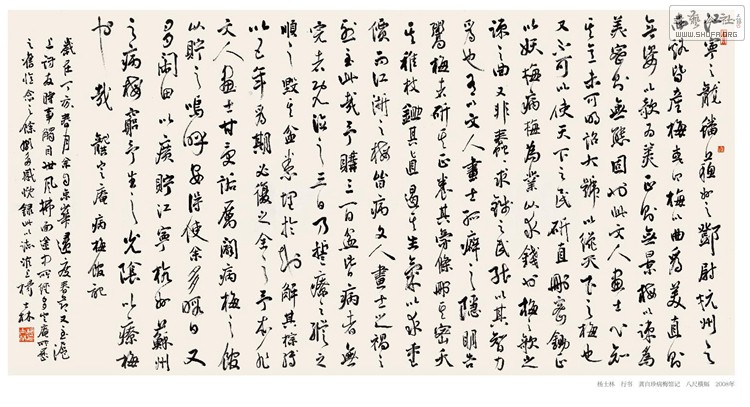 江寧之龍蟠蘇州之鄧尉杭州之
西溪皆產梅或曰梅以曲為美直則
無姿以欹為美正則無景梅以疎為
美密則無態固也此文人畫士心知
其意未可明詔大號以繩天下之梅也
又不可以使天下之民斫直刪密鋤正
以妖梅病梅為業以求錢也梅之欹之
疎之曲又非蠢蠢求錢之民能以其智力
為也有以文人畫士孤癖之隱明告
鬻梅者斫其正養其旁條刪其密夭
其稚枝鋤其直遏其生氣以求重
價而江浙之梅皆病文人畫士之禍之
烈至此哉予購三百盆皆病者無
完者既泣之三日乃誓療之縱之
順之毀其盆悉埋於地解其棕縛
以五年為期必復之全之予本非
文人畫士甘受詬厲闢病梅之館
以貯之嗚呼安得使余多暇日又
多閒田以廣貯江寧杭州蘇州
之病梅窮予生之光陰以療梅
也哉 龔定庵病梅館記
歲在丁亥春月余自京華還度春節又至滬
上討友時事觸目世風拂面
之餘
楊士林 行书 龚自珍病梅馆记 八尺横幅 2008年
WWW.SHUFA.ORG